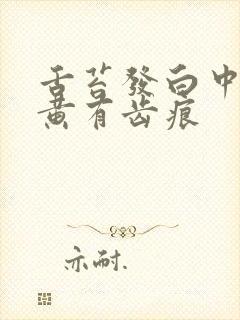 舌苔發白中
黄有齿痕
亦耐.